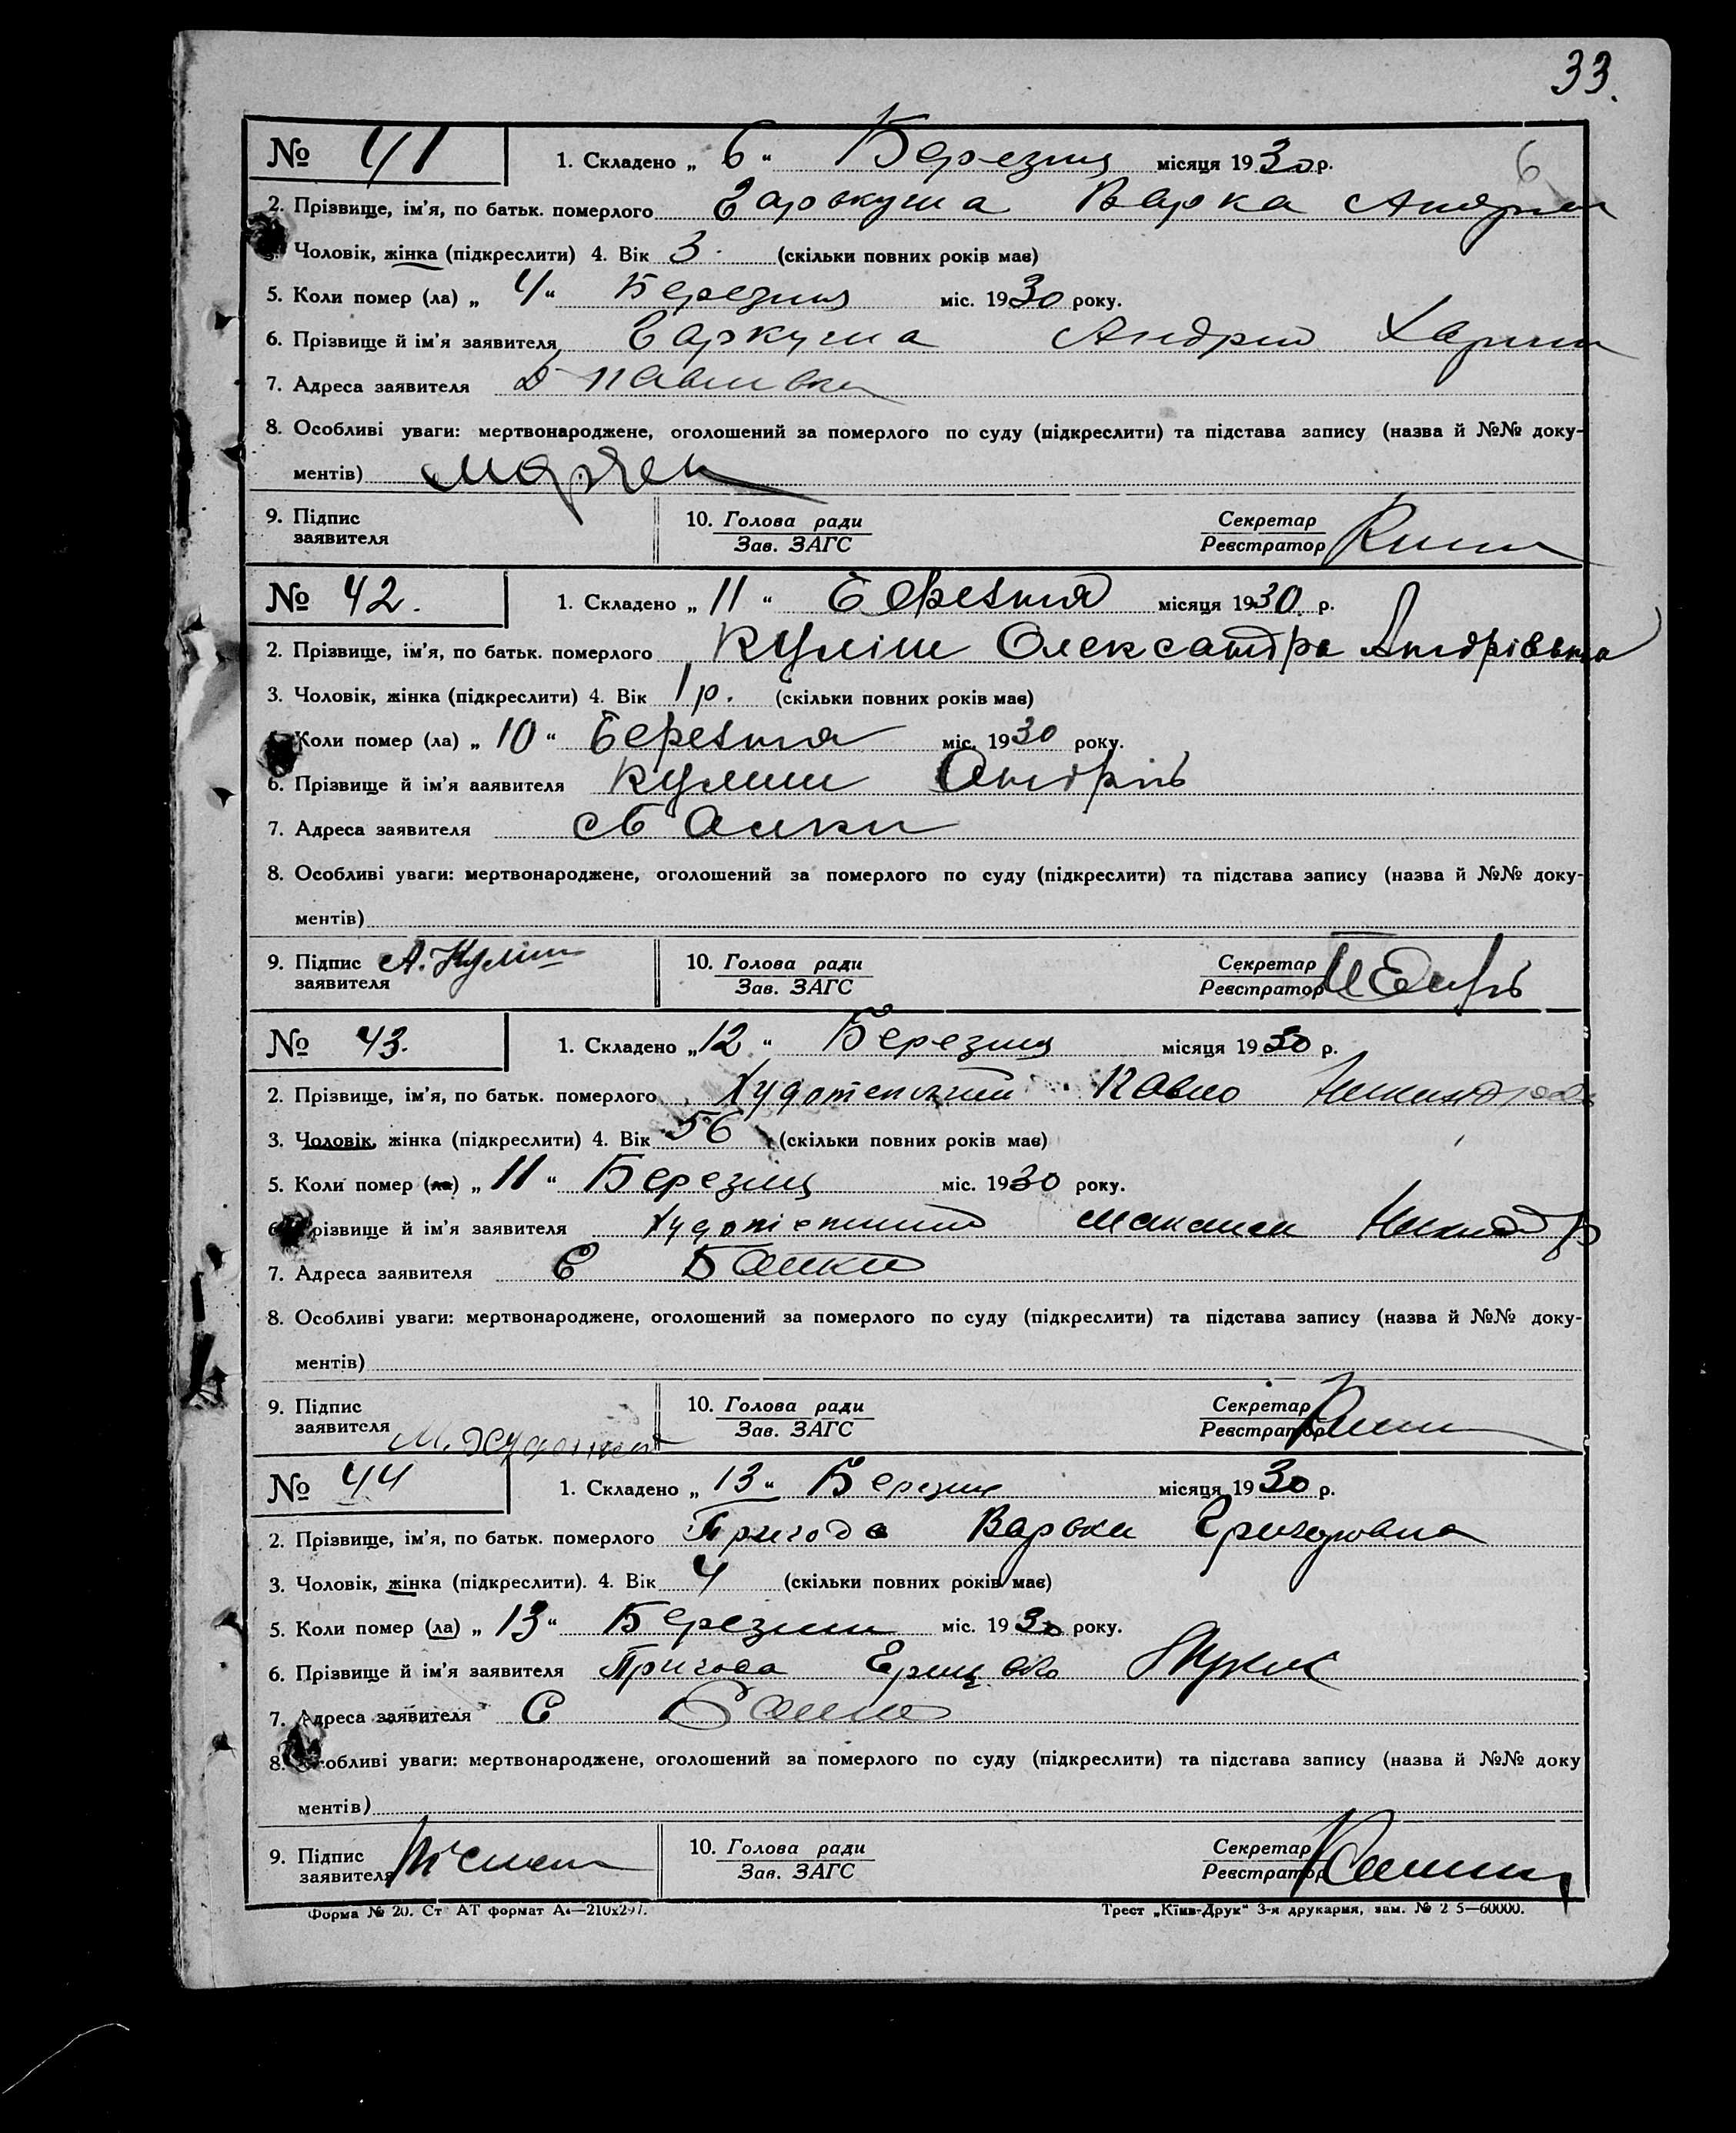 33.
№ 41 1. Складено „ 6 “ Березня місяця 1930 р.
6
2. Прізвище, ім’я, по батьк. померлого Гаркуша Варка Андрии
Чоловік, жінка (підкреслити) 4. Вік 3 (скільки повних років має)
5. Коли помер (ла) „ 4 “ Березня міс. 1930 року.
6. Прізвище й ім’я заявителя Гаркуша Андрий
7. Адреса заявителя Павливка
8. Особливі уваги: мертвонароджене, оголошений за померлого по суду (підкреслити) та підстава запису (назва й №№ доку-
ментів)
9. Підпис 10. Голова ради Секретар
заявителя Зав. ЗАГС Реєстратор
№ 42. 1. Складено „ 11 “ Березня місяця 1930 р.
2. Прізвище, ім’я, по батьк. померлого Куліш Олександра Андрієвна
3. Чоловік, жінка (підкреслити) 4. Вік 1 р. (скільки повних років має)
Коли помер (ла) „ 10 “ Березня міс. 1930 року.
6. Прізвище й ім’я заявителя Кулиш Андрій
7. Адреса заявителя с Башки
8. Особливі уваги: мертвонароджене, оголошений за померлого по суду (підкреслити) та підстава запису (назва й №№ доку-
ментів)
9. Підпис А. Куліш 10. Голова ради Секретар
заявителя Зав. ЗАГС Реєстратор
№ 43. 1. Складено „ 12 “ Березня місяця 1930 р.
2. Прізвище, ім’я, по батьк. померлого Павло
3. Чоловік, жінка (підкреслити) 4. Вік 56 (скільки повних років має)
5. Коли помер (ла) „ 11 “ Березня міс. 1930 року.
6. Прізвище й ім’я заявителя Максим
7. Адреса заявителя С Башки
8. Особливі уваги: мертвонароджене, оголошений за померлого по суду (підкреслити) та підстава запису (назва й №№ доку-
ментів)
9. Підпис 10. Голова ради Секретар
заявителя Зав. ЗАГС Реєстратор
№ 44 1. Складено „ 13 “ Березня місяця 1930 р.
2. Прізвище, ім’я, по батьк. померлого Пригода Варвка Григоровна
3. Чоловік, жінка (підкреслити). 4. Вік 4 (скільки повних років має)
5. Коли помер (ла) „ 13 “ Березня міс. 1930 року.
6. Прізвище й ім’я заявителя Пригода
7. Адреса заявителя С Башки
8. Особливі уваги: мертвонароджене, оголошений за померлого по суду (підкреслити) та підстава запису (назва й №№ доку
ментів)
9. Підпис 10. Голова ради Секретар
заявителя Зав. ЗАГС Реєстратор
Форма № 20. Ст АТ формат А4—210x297. Трест „Київ-Друк“ 3-я друкарня, зам. № 2 5—60000.